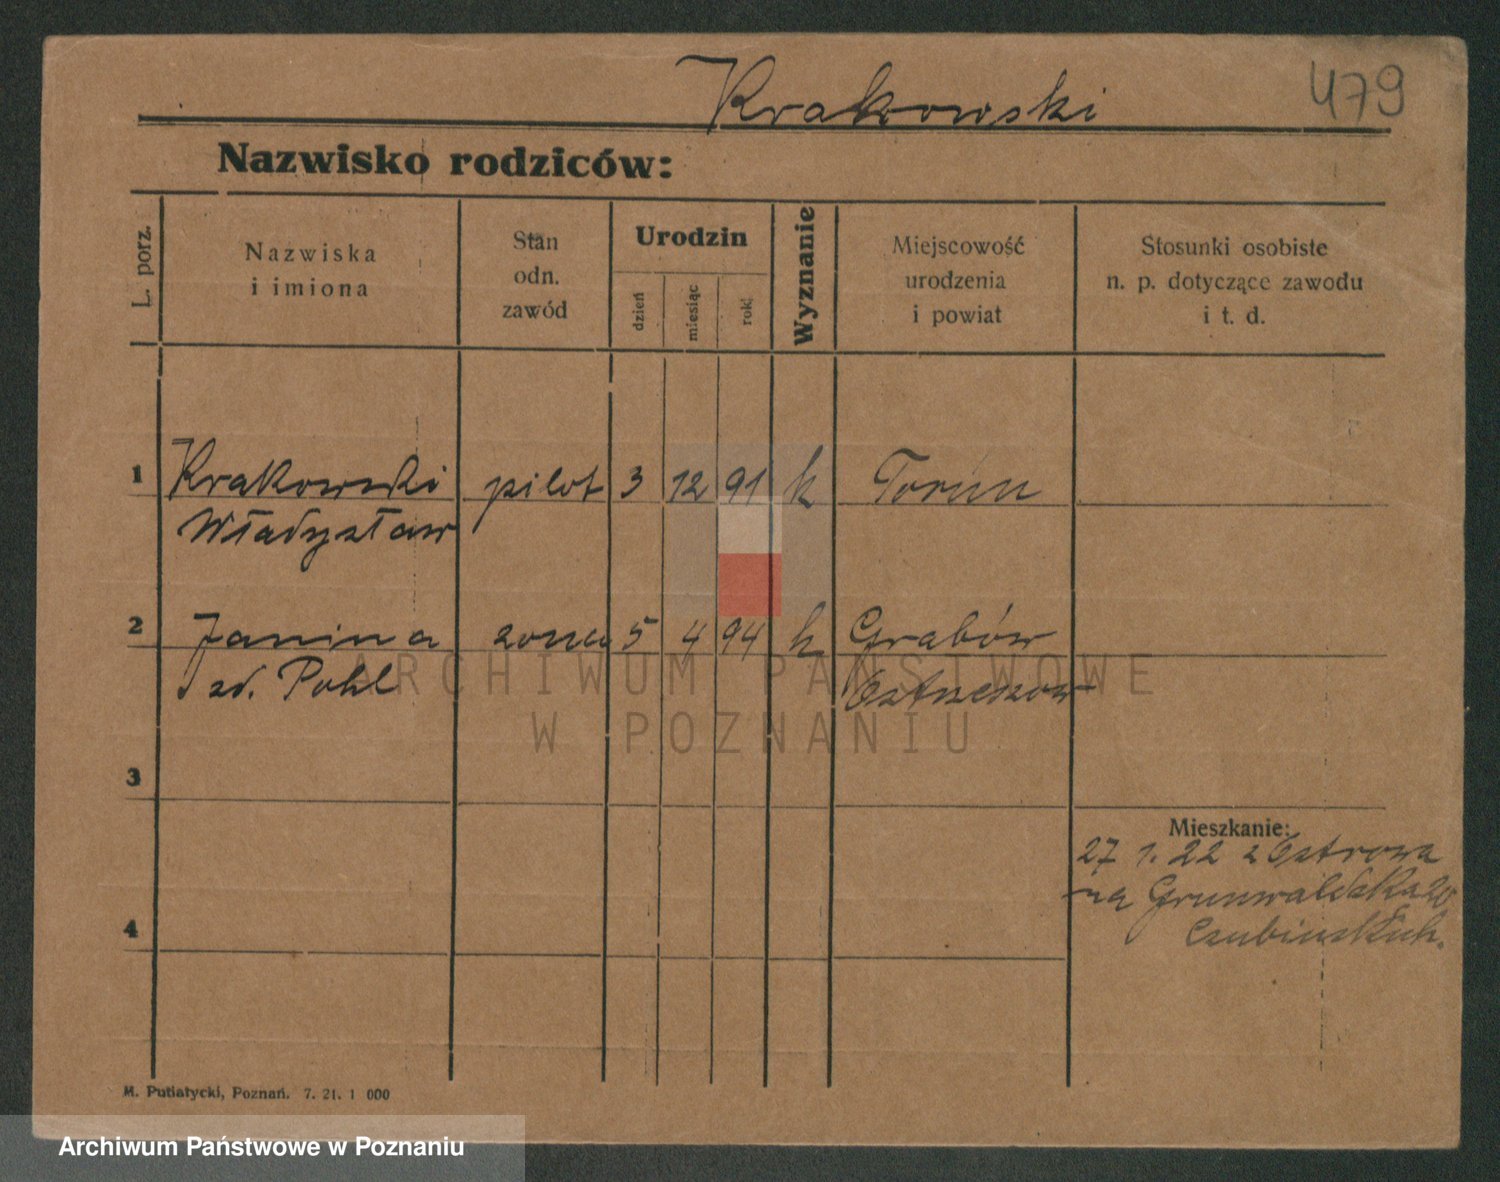 Krakowski
479
Nazwisko rodziców:
L. porz.
Nazwiska
i imiona
Stan
odn.
zawód
Urodzin
dzień
miesiąc
rok
Wyznanie
Miejscowość
urodzenia
i powiat
Stosunki osobiste
n. p. dotyczące zawodu
i t. d.
1 Krakowski pilot 3 12 91 k Toruń
Władysław
2 Janina żona 5 4 94 k Grabów
zd. Pohl Ostrzeszow
3
Mieszkanie:
27 1. 22 z Ostrowa
na Grunwaldska 20
4
M. Putiatycki, Poznań. 7. 21. 1 000
ARCHIWUM PAŃSTWOWE
W POZNANIU
Archiwum Państwowe w Poznaniu